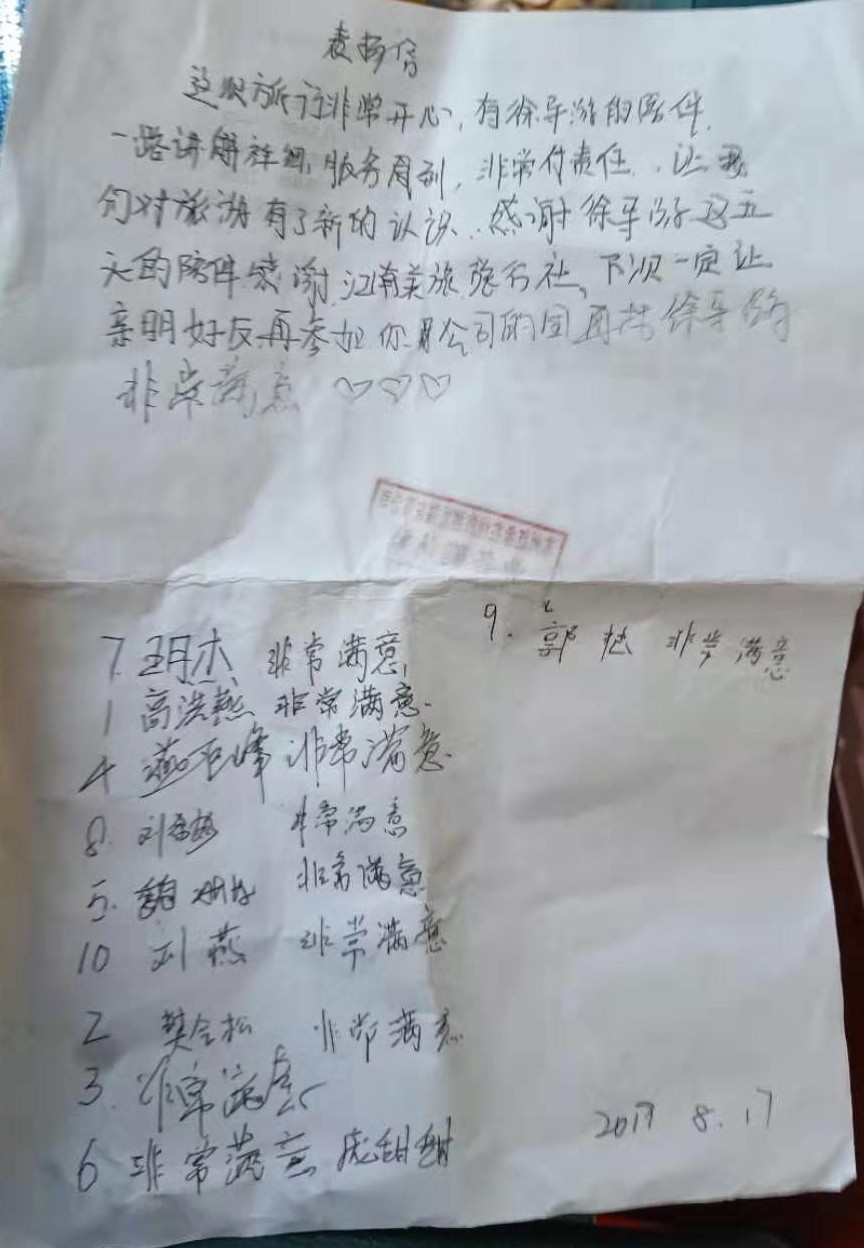 表扬信
这次旅行非常开心,有徐导游的陪伴,
一路讲解祥细,服务周到,非常付责任,让我
们对旅游有了新的认识,感谢徐导游这五
天的陪伴感谢江南美旅旅行社,下次一定让
亲朋好友再参加你们公司的团再找徐导游
非常满意 ♡♡♡
7 王月杰 非常满意
9. 郭 非常满意
1 高洪燕 非常满意.
4 峰 非常满意
8 刘 非常满意
5. 魏 非常满意
10 刘燕 非常满意
2 樊会松 非常满意
3. 非常满意
6 非常满意 庞甜甜
2017 8.17